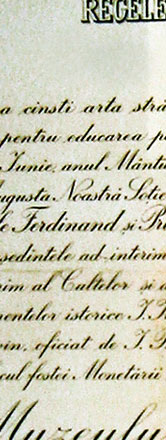 REGELE
a cinsti arta stră
pentru educarea p
Iunie, anul Mânt
Augusta Noastră Soție
le Ferdinand și Pr
ședintele ad-interim
rim al Cultelor și a
mentelor istorice I. K
vin, oficiat de I. P
cul fostei Monetării
Muzeulu